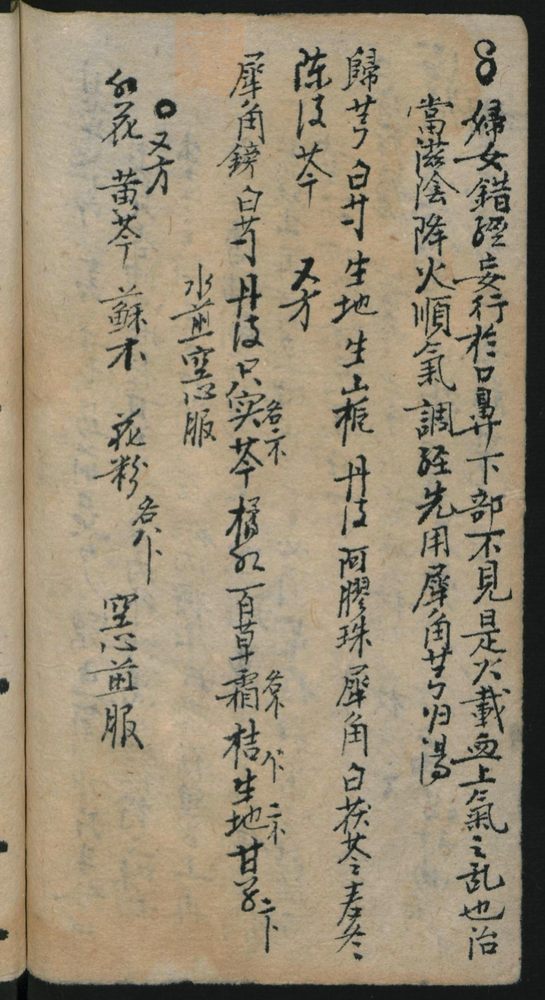 婦女錯經妄行於口鼻下部不見是火載血上氣之乱也治
當滋陰降火順氣調經先用犀角芎归湯
歸芎白芍生地生山梔丹皮阿膠珠犀角白茯苓麦冬
陳皮芩 又方
犀角鎊白芍丹皮只实各 芩橘红百草霜 桔 生地 甘草
水煎空心服
又方
红花 黄芩 蘇木 花粉各 空心煎服